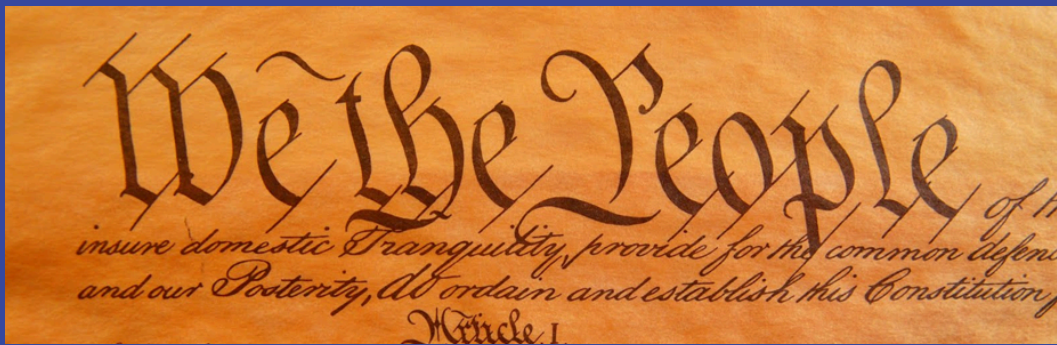 We the People of th
insure domestic Tranquility, provide for the common defenc
and our Posterity, do ordain and establish this Constitution
Article. I.